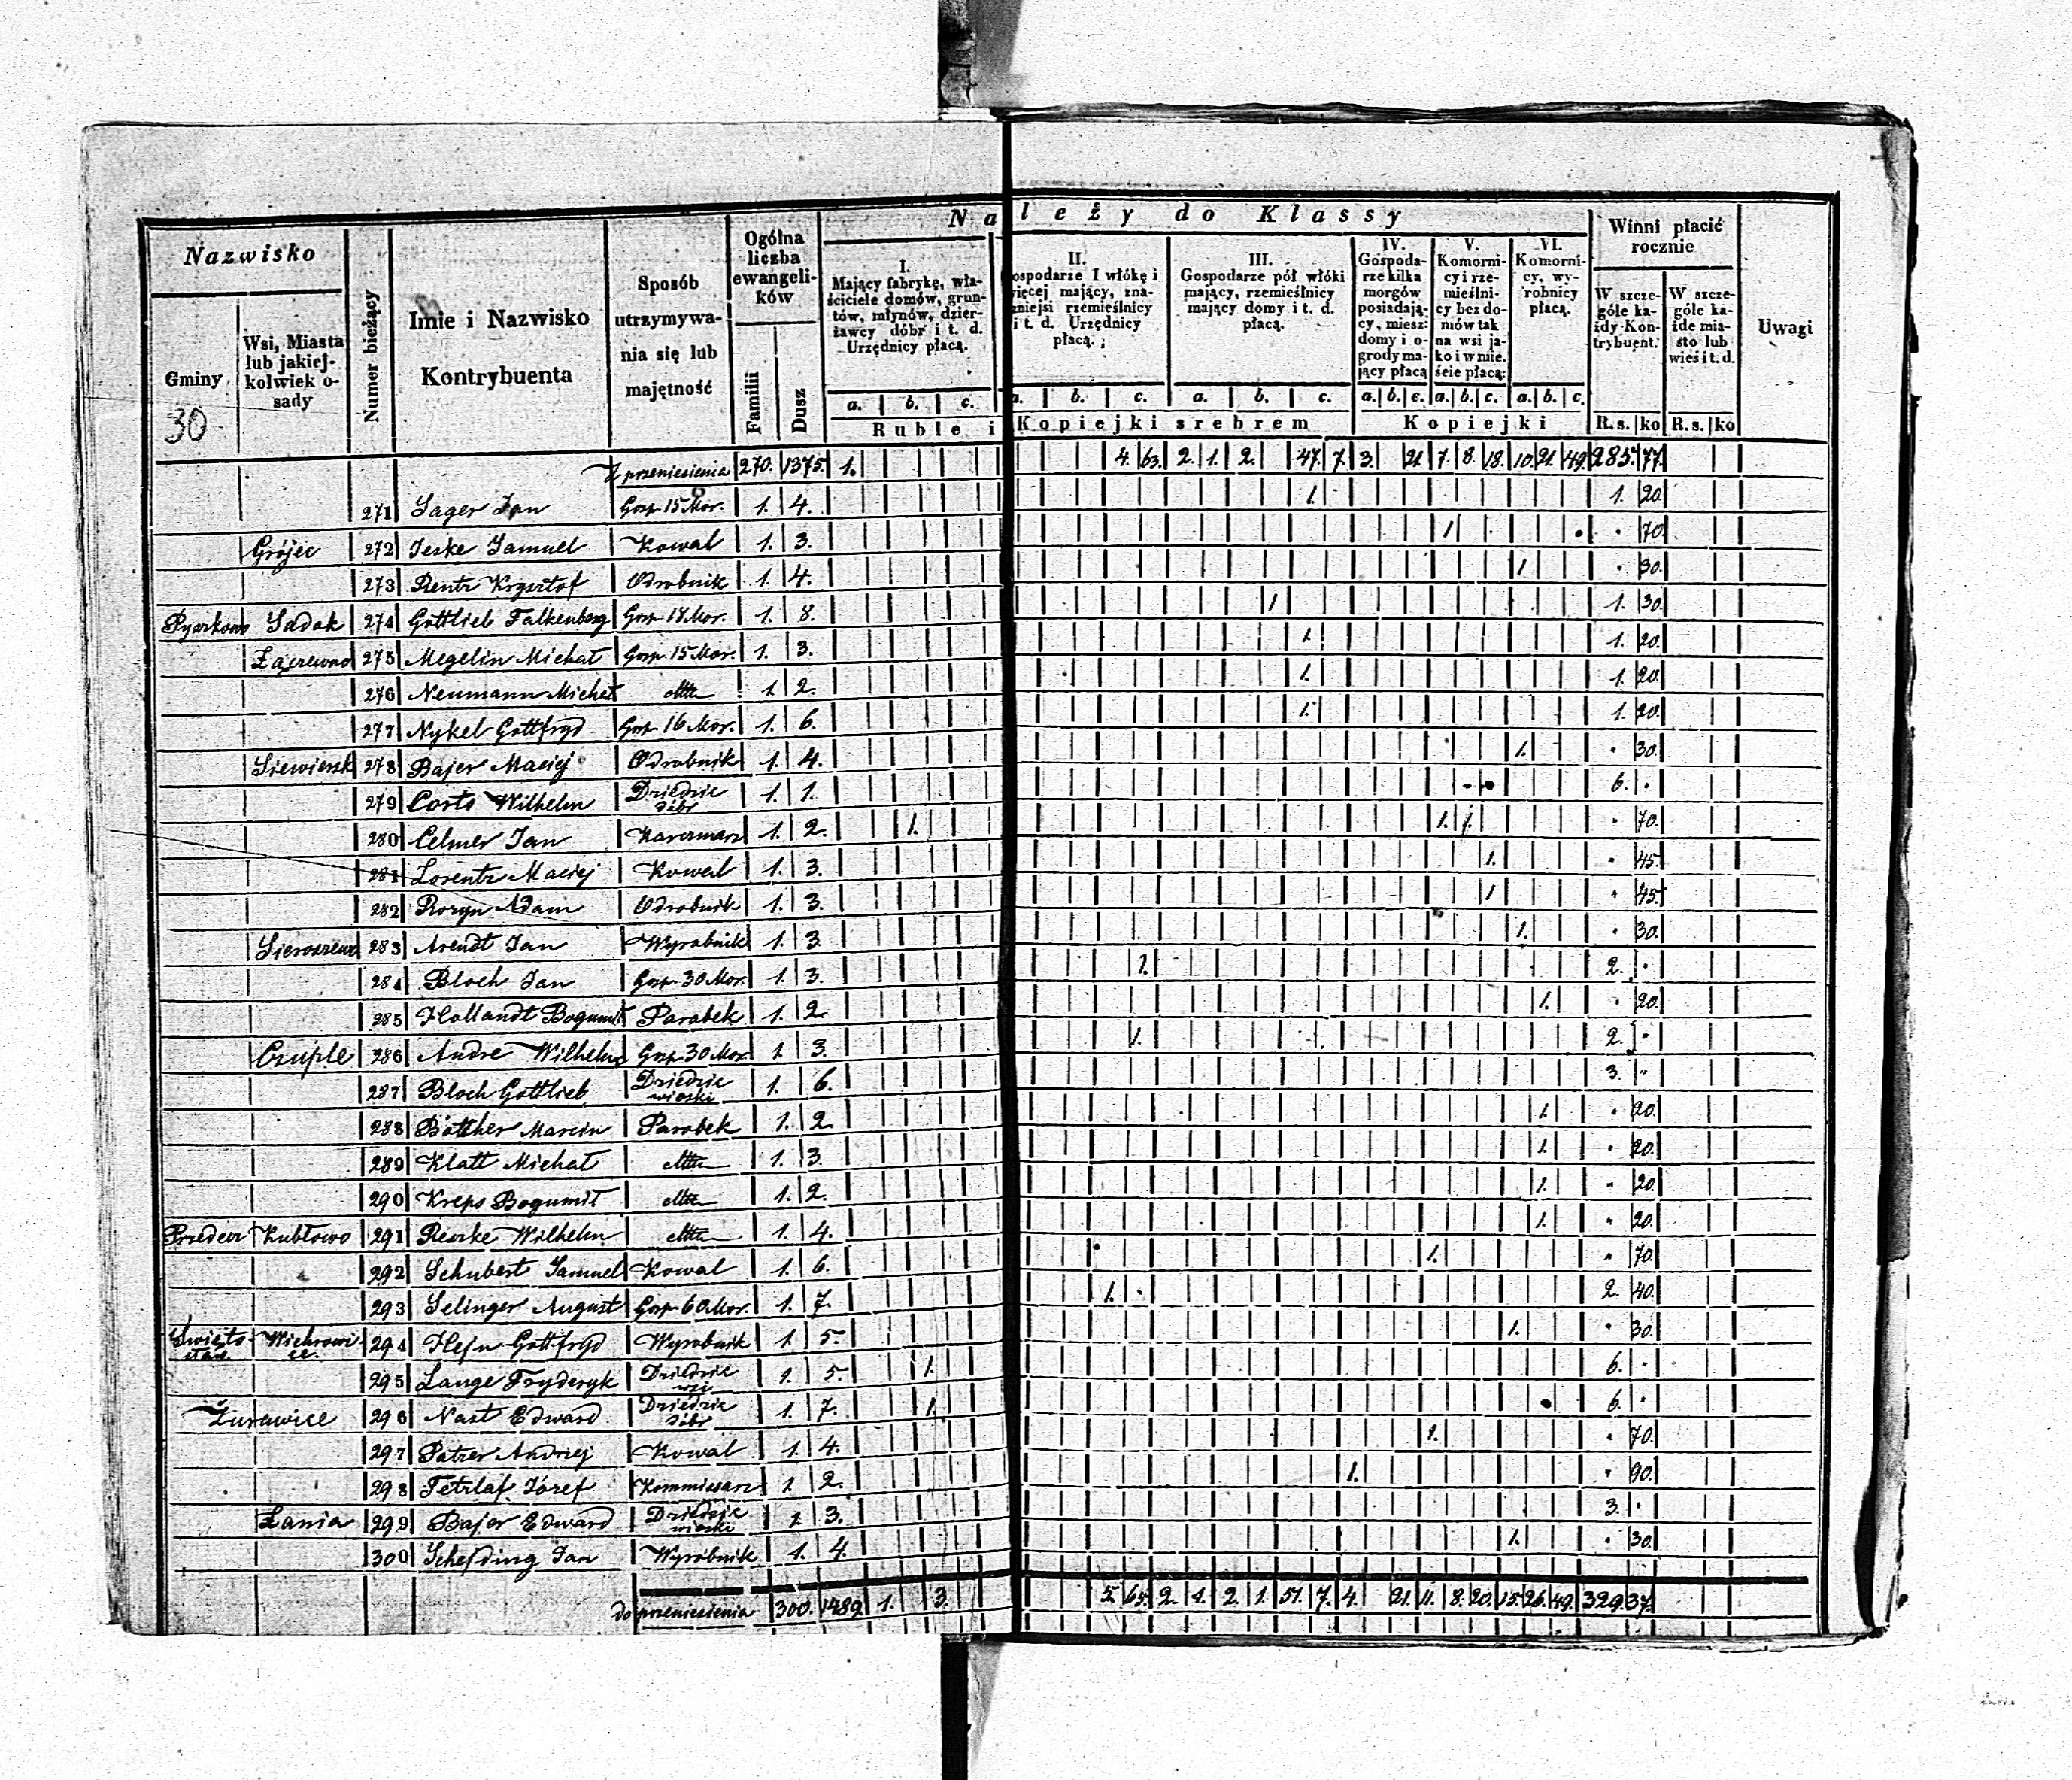 Należy do Klassy
Nazwisko
Gminy
30
Wsi, Miasta lub jakiejkolwiek osady
Numer bieżący
Imie i Nazwisko Kontrybuenta
Sposób utrzymywania się lub majętność
Ogólna liczba ewangelików
Familii
Dusz
I. Mający fabrykę, właściciele domów, gruntów, młynów, dzierławcy dóbr i t. d. Urzędnicy płacą.
II. ospodarze I włókę i więcej mający, znaczniejsi rzemieślnicy i t. d. Urzędnicy płacą.
III. Gospodarze pół włóki mający, rzemieślnicy mający domy i t. d. płacą.
IV. Gospodarze kilka morgów posiadający, miesz: domy i ogrody mający płacą
V. Komornicy i rzemieślnicy bez domów tak na wsi jako i w mieście płacą:
VI. Komornicy, wyrobnicy płacą.
Winni płacić rocznie
W szczególe każdy Kontrybuent.
W szczególe każde miasto lub wieś i t. d.
Uwagi
a. b. c. a. b. c. a. b. c. a. b. c. a. b. c. a. b. c.
Ruble i Kopiejki srebrem Kopiejki R.s. ko R.s. ko
Z przeniesienia 270. 1375. 1. 4. 63. 2. 1. 2. 47. 7. 3. 21. 7. 8. 18. 10. 21. 49. 285. 77.
271 Sager Jan Gosp. 15 Mor. 1. 4. 1. 1. 20.
Grójec 272 Jeske Samuel Kowal 1. 3. 1 . 70.
273 Rentz Krysztof Odrobnik 1. 4. 1 . 30.
Pyszkowo Sadok 274 Gottlieb Falkenberg Gosp. 18 Mor. 1. 8. 1 1. 30.
Łączewno 275 Megelin Michał Gosp. 15 Mor. 1. 3. 1. 1. 20.
276 Neumann Michał dtto 1. 2. 1. 1. 20.
277 Nykel Gottfryd Gosp. 16 Mor. 1. 6. 1. 1. 20.
Siewiersk 278 Bajer Maciej Odrobnik 1. 4. 1. . 30.
279 Corts Wilhelm Dziedzic dóbr 1. 1. 6. .
280 Celmer Jan Karczmarz 1. 2. 1. 1. 1. . 70.
281 Lorentz Maciej Kowal 1. 3. 1. . 45.
282 Rozyn Adam Odrobnik 1. 3. 1 . 45.
Sieroszewo 283 Arendt Jan Wyrobnik 1. 3. 1. . 30.
284 Bloch Jan Gosp. 30 Mor. 1. 3. 1. 2. .
285 Hollandt Bogumił Parobek 1. 2. 1. . 20.
Czuple 286 Andre Wilhelm Gosp. 30 Mor. 1. 3. 1. 2. .
287 Bloch Gottlieb Dziedzic wioski 1. 6. 3. "
288 Böttcher Marcin Parobek 1. 2. 1. . 20.
289 Klatt Michał dtto 1. 3. 1. . 20.
290 Kreps Bogumił dtto 1. 2. 1. . 20.
Przedecz Kubłowo 291 Reszke Wilhelm dtto 1. 4. 1. . 20.
292 Schubert Samuel Kowal 1. 6. 1. . 70.
293 Selinger August Gosp. 60 Mor. 1. 7. 1. 2. 40.
294 Hejn Gottfryd Wyrobnik 1. 5. 1. . 30.
295 Lange Fryderyk Dziedzic wsi 1. 5. 1. 6. .
Żurawice 296 Nast Edward Dziedzic dóbr 1. 7. 1. 6. .
297 Patzer Andrzej Kowal 1. 4. 1. . 70.
298 Tetzlaf Józef Kommissarz 1. 2. 1. . 90.
Łania 299 Bajer Edward Dziedzic wioski 1. 3. 3. .
300 Schefding Jan Wyróbnik 1. 4. 1. . 30.
do przeniesienia 300. 1489. 1. 3. 5. 65. 2. 1. 2. 1. 51. 7. 4. 21. 11. 8. 20. 15. 26. 49. 329. 37.